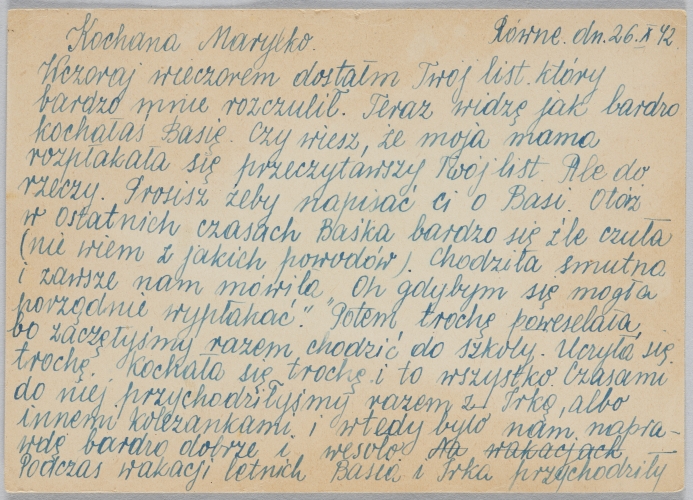 Równe. dn. 26.X 42
Kochana Marylko.
Wczoraj wieczorem dostałm Twój list. który
bardzo mnie rozczulił. Teraz widzę jak bardzo
kochałaś Basię. Czy wiesz, że moja mama
rozpłakała się przeczytawszy Twój list. Ale do
rzeczy. Prosisz żeby napisać ci o Basi. Otóż
w ostatnich czasach Baśka bardzo się źle czuła
(nie wiem z jakich powodów). Chodziła smutna
i zawsze nam mówiła „Oh gdybym się mogła
porządnie wypłakać." Potem trochę poweselała,
bo zaczęłyśmy razem chodzić do szkoły. Uczyła się
trochę. Kochała się trochę i to wszystko. Czasami
do niej przychodziłyśmy razem z Irką, albo
innemi koleżankami i wtedy było nam napra-
wdę bardzo dobrze i wesoło. Na wakacjach
Podczas wakacji letnich Basia i Irka przychodziły